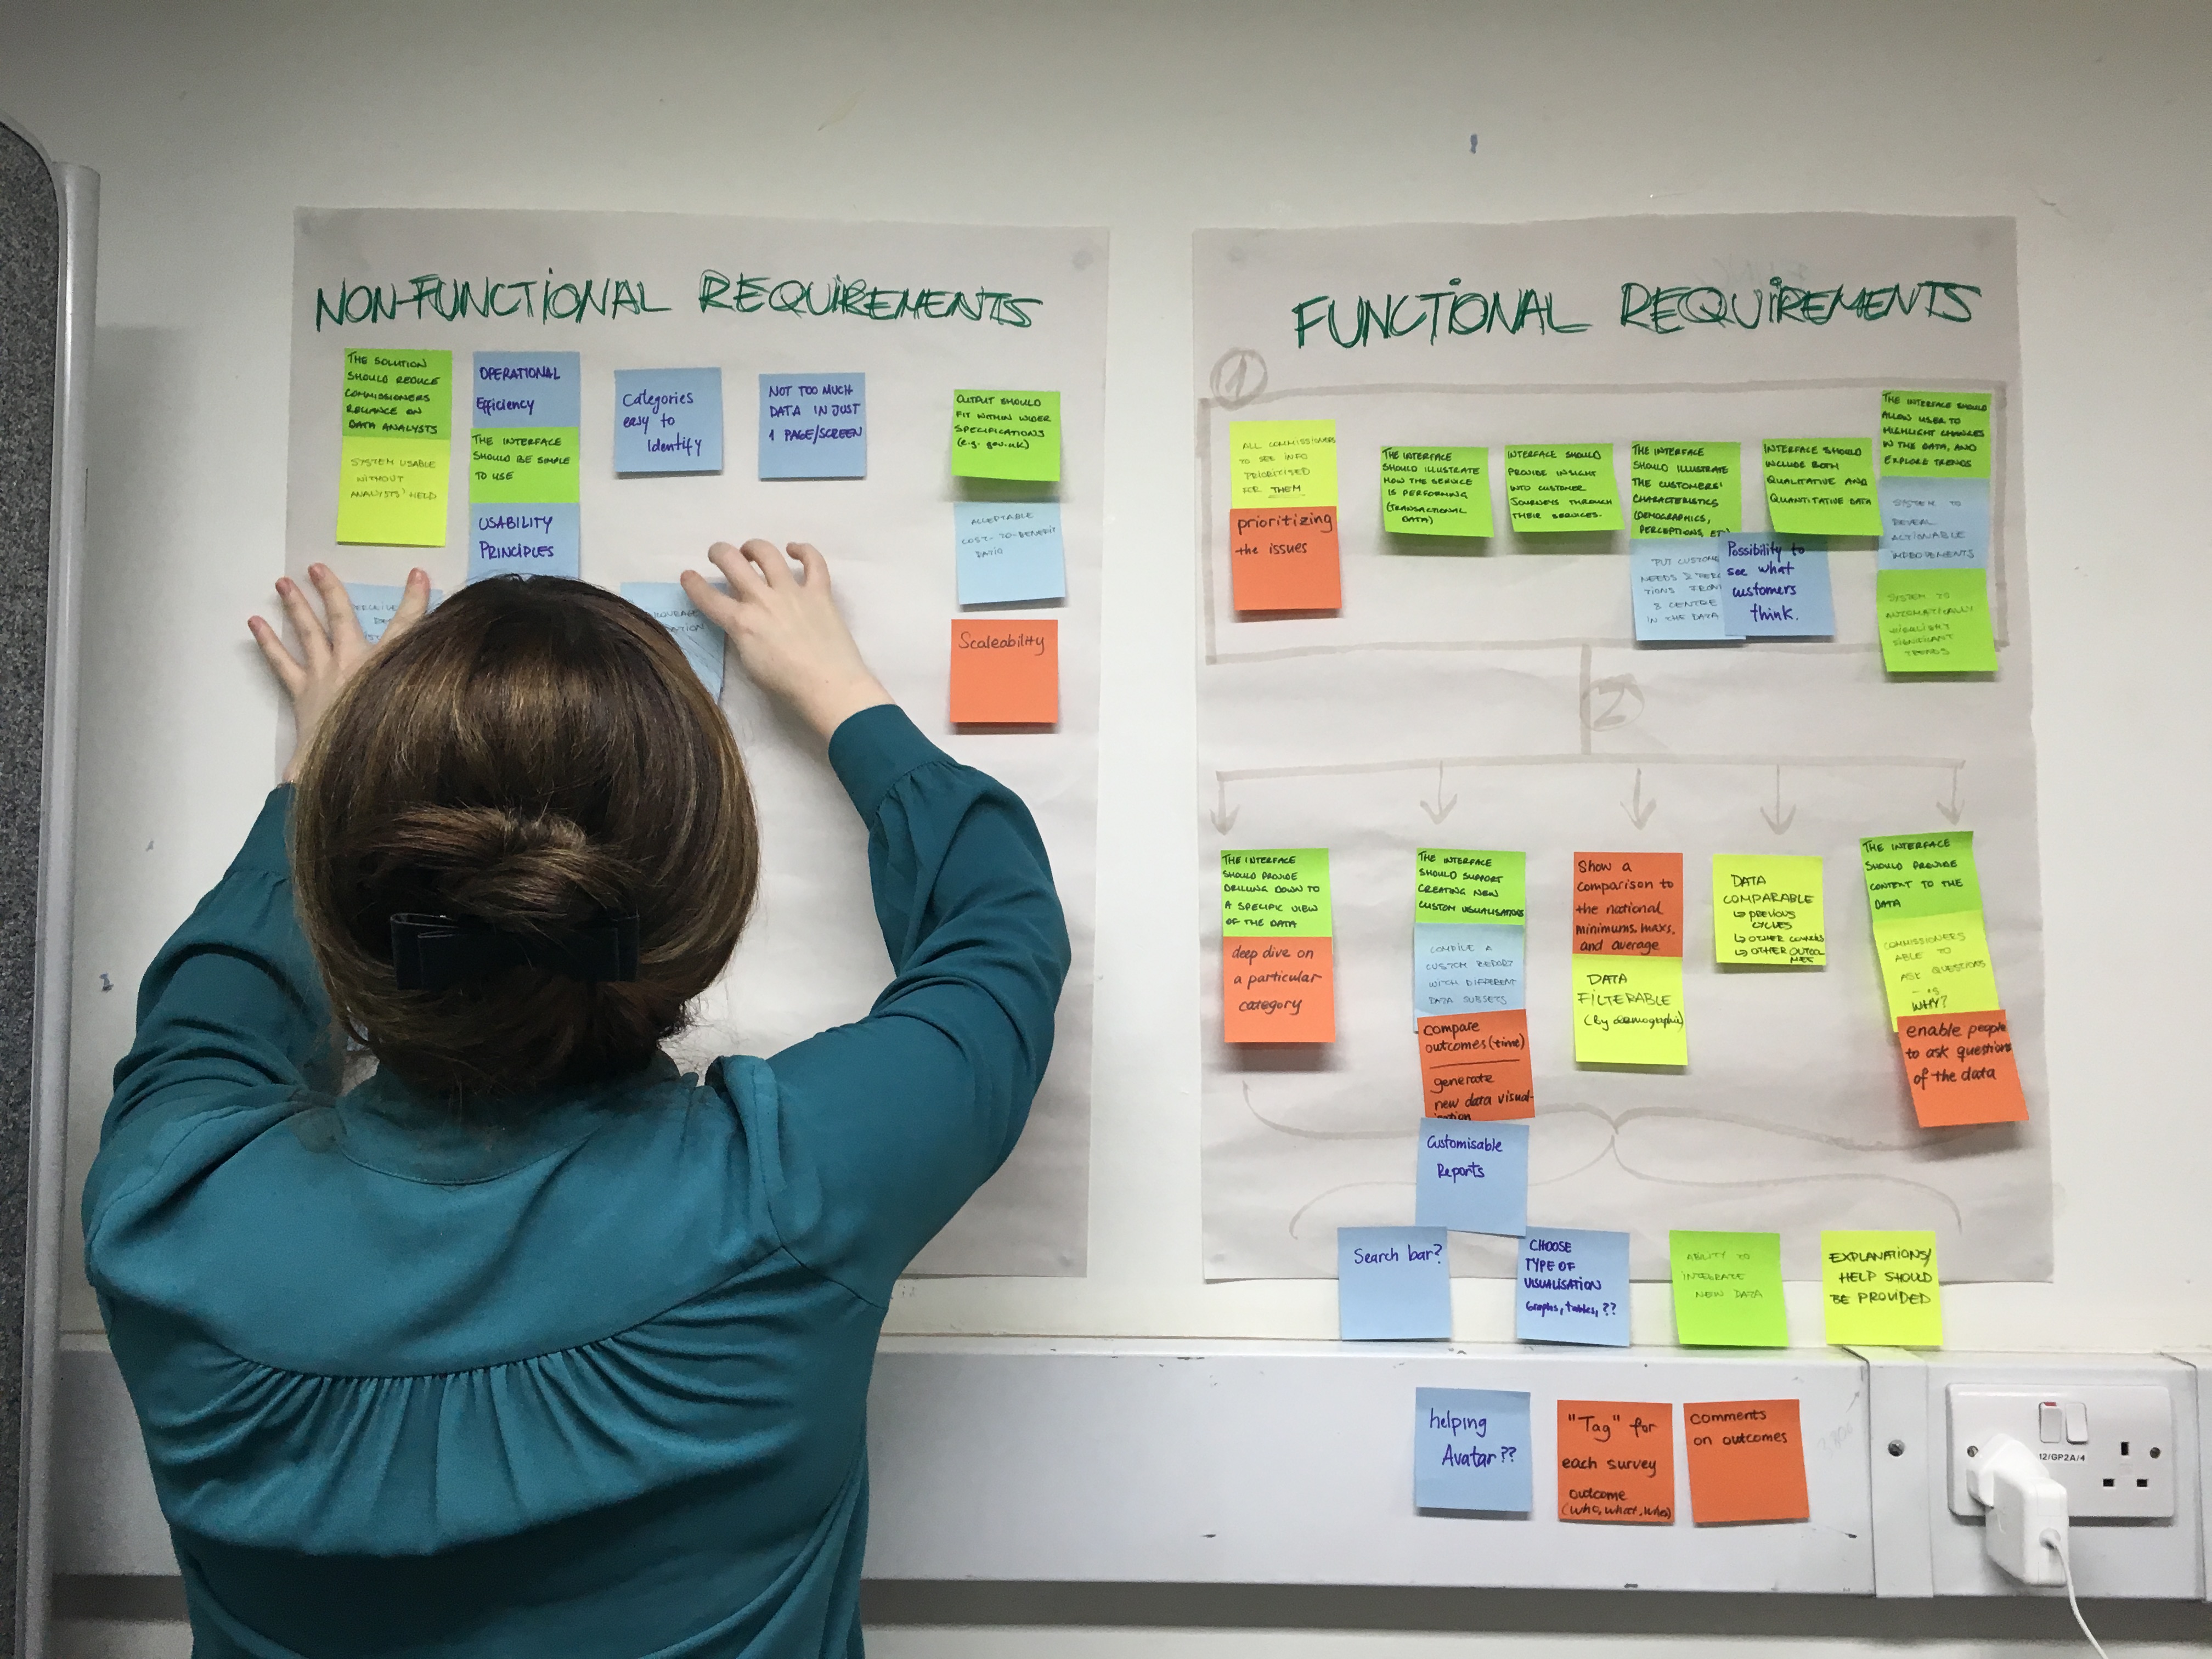 NON-FUNCTIONAL REQUIREMENTS
THE SOLUTION
SHOULD REDUCE
COMMISSIONERS
RELIANCE ON
DATA ANALYSTS
SYSTEM USABLE
WITHOUT
ANALYSTS' HELP
OPERATIONAL
Efficiency
THE INTERFACE
SHOULD BE SIMPLE
TO USE
USABILITY
PRINCIPLES
Categories
easy to
Identify
NOT TOO MUCH
DATA IN JUST
1 PAGE/SCREEN
OUTPUT SHOULD
FIT WITHIN WIDER
SPECIFICATIONS
(e.g. gov.uk)
ACCEPTABLE
COST-TO-BENEFIT
RATIO
Scaleability
FUNCTIONAL REQUIREMENTS
1
ALL COMMISSIONERS
TO SEE INFO
PRIORITISED
FOR THEM
prioritizing
the issues
THE INTERFACE
SHOULD ILLUSTRATE
HOW THE SERVICE
IS PERFORMING
(TRANSACTIONAL
DATA)
INTERFACE SHOULD
PROVIDE INSIGHT
INTO CUSTOMER
JOURNEYS THROUGH
THEIR SERVICES.
THE INTERFACE
SHOULD ILLUSTRATE
THE CUSTOMERS'
CHARACTERISTICS
(DEMOGRAPHICS,
PERCEPTIONS, ET
PUT CUSTOME
NEEDS &
TIONS FRON
& CENTRE
IN THE DATA
Possibility to
see what
customers
think.
INTERFACE SHOULD
INCLUDE BOTH
QUALITATIVE AND
QUANTITATIVE DATA
THE INTERFACE SHOULD
ALLOW USER TO
HIGHLIGHT CHANGES
IN THE DATA, AND
EXPLORE TRENDS
SYSTEM TO
REVEAL
ACTIONABLE
IMPROVEMENTS
SYSTEM TO
AUTOMATICALLY
HIGHLIGHT
SIGNIFICANT
TRENDS
2
THE INTERFACE
SHOULD PROVIDE
DRILLING DOWN TO
A SPECIFIC VIEW
OF THE DATA
deep dive on
a particular
category
THE INTERFACE
SHOULD SUPPORT
CREATING NEW
CUSTOM VISUALISATIONS
COMPILE A
CUSTOM REPORT
WITH DIFFERENT
DATA SUBSETS
compare
outcomes (time)
generate
new data visual-
ization
Customisable
Reports
Show a
comparison to
the national
minimums, maxs,
and average
DATA
FILTERABLE
(by demographic)
DATA
COMPARABLE
↳ PREVIOUS
CYCLES
↳ OTHER COUNCILS
↳ OTHER OUTCO
MES
THE INTERFACE
SHOULD PROVIDE
CONTEXT TO THE
DATA
COMMISSIONERS
ABLE TO
ASK QUESTIONS
WHY?
enable people
to ask questions
of the data
Search bar?
CHOOSE
TYPE OF
VISUALISATION
Graphs, tables, ??
ABILITY TO
INTEGRATE
NEW DATA
EXPLANATIONS/
HELP SHOULD
BE PROVIDED
helping
Avatar??
"Tag" for
each survey
outcome
(who, what, when)
comments
on outcomes